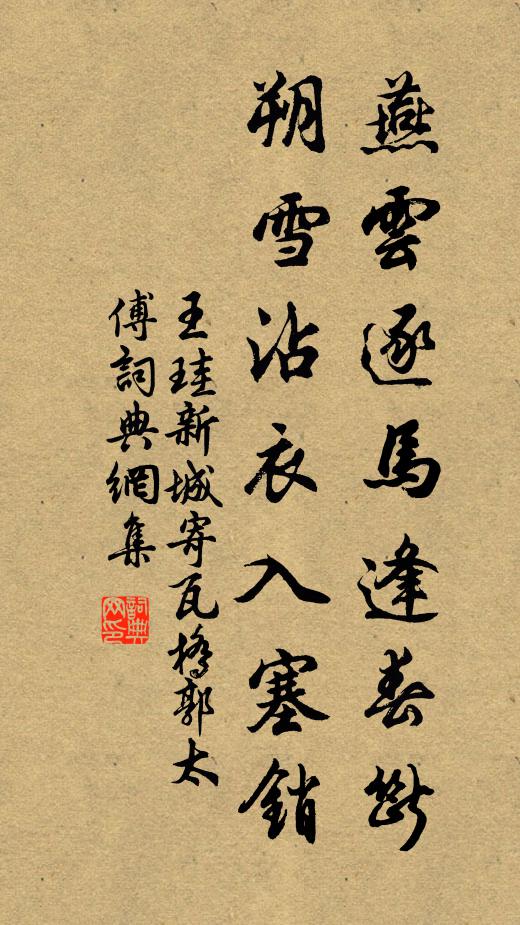 燕雲逐馬逢春斷
朔雪沾衣入塞銷
王珪新城寄瓦橋郭太
傅詞典網集
詞典
网印